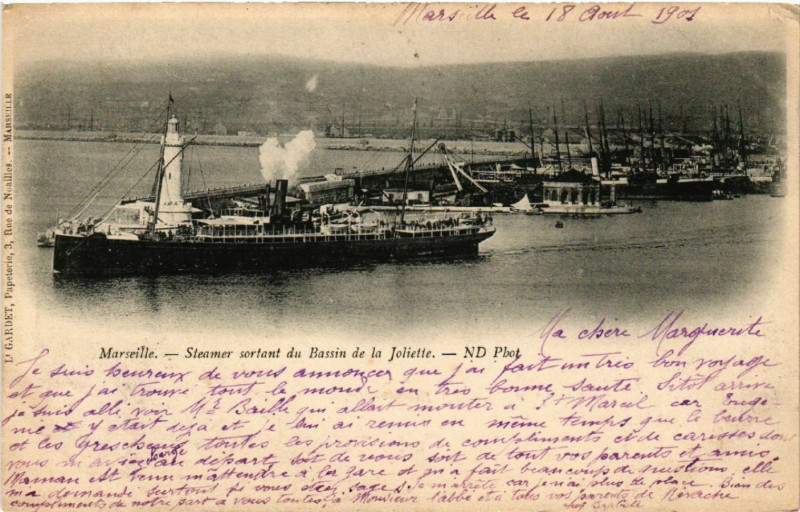 Marseille le 18 Aout 1901
L. GARDET, Papeterie, 3, Rue de Noailles. — MARSEILLE
Marseille. — Steamer sortant du Bassin de la Joliette. — ND Phot
Ma chère Marguerite
Je suis heureux de vous annoncer que j'ai fait un très bon voyage
et que j'ai trouvé tout le monde en très bonne santé Sitot arrivé
je suis allé voir Mr Baille qui allait monter à St Marcel car
me y était déjà et je lui ai remis en même temps que le beurre
et les toutes les provisions de compliments et de caresses dont
vous m'aviez chargé au départ soit de vous soit de tout vos parents et amis.
Maman est venu m'attendre à la gare et m'a fait beaucoup de questions elle
m'a demandé surtout si vous étiez sages Je m'arrête car je n'ai plus de place. Bien des
compliments de notre part à vous toutes, à Monsieur l'abbé et à tous vos parents de
Baptiste